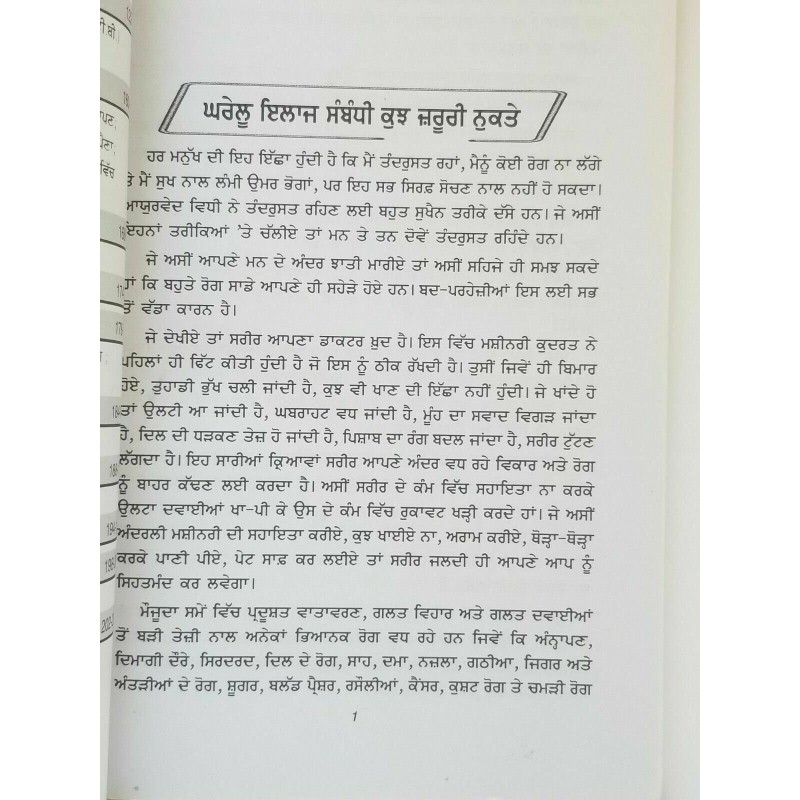 ਘਰੇਲੂ ਇਲਾਜ ਸੰਬੰਧੀ ਕੁਝ ਜ਼ਰੂਰੀ ਨੁਕਤੇ
ਹਰ ਮਨੁੱਖ ਦੀ ਇਹ ਇੱਛਾ ਹੁੰਦੀ ਹੈ ਕਿ ਮੈਂ ਤੰਦਰੁਸਤ ਰਹਾਂ, ਮੈਨੂੰ ਕੋਈ ਰੋਗ ਨਾ ਲੱਗੇ
ਤੇ ਮੈਂ ਸੁਖ ਨਾਲ ਲੰਮੀ ਉਮਰ ਭੋਗਾਂ, ਪਰ ਇਹ ਸਭ ਸਿਰਫ਼ ਸੋਚਣ ਨਾਲ ਨਹੀਂ ਹੋ ਸਕਦਾ।
ਆਯੁਰਵੇਦ ਵਿਧੀ ਨੇ ਤੰਦਰੁਸਤ ਰਹਿਣ ਲਈ ਬਹੁਤ ਸੁਖੈਨ ਤਰੀਕੇ ਦੱਸੇ ਹਨ। ਜੇ ਅਸੀਂ
ਇਹਨਾਂ ਤਰੀਕਿਆਂ ’ਤੇ ਚੱਲੀਏ ਤਾਂ ਮਨ ਤੇ ਤਨ ਦੋਵੇਂ ਤੰਦਰੁਸਤ ਰਹਿੰਦੇ ਹਨ।
ਜੇ ਅਸੀਂ ਆਪਣੇ ਮਨ ਦੇ ਅੰਦਰ ਝਾਤੀ ਮਾਰੀਏ ਤਾਂ ਅਸੀਂ ਸਹਿਜੇ ਹੀ ਸਮਝ ਸਕਦੇ
ਹਾਂ ਕਿ ਬਹੁਤੇ ਰੋਗ ਸਾਡੇ ਆਪਣੇ ਹੀ ਸਹੇੜੇ ਹੋਏ ਹਨ। ਬਦ-ਪਰਹੇਜ਼ੀਆਂ ਇਸ ਲਈ ਸਭ
ਤੋਂ ਵੱਡਾ ਕਾਰਨ ਹੈ।
ਜੇ ਦੇਖੀਏ ਤਾਂ ਸਰੀਰ ਆਪਣਾ ਡਾਕਟਰ ਖ਼ੁਦ ਹੈ। ਇਸ ਵਿੱਚ ਮਸ਼ੀਨਰੀ ਕੁਦਰਤ ਨੇ
ਪਹਿਲਾਂ ਹੀ ਫਿੱਟ ਕੀਤੀ ਹੁੰਦੀ ਹੈ ਜੋ ਇਸ ਨੂੰ ਠੀਕ ਰੱਖਦੀ ਹੈ। ਤੁਸੀਂ ਜਿਵੇਂ ਹੀ ਬਿਮਾਰ
ਹੋਏ, ਤੁਹਾਡੀ ਭੁੱਖ ਚਲੀ ਜਾਂਦੀ ਹੈ, ਕੁਝ ਵੀ ਖਾਣ ਦੀ ਇੱਛਾ ਨਹੀਂ ਹੁੰਦੀ। ਜੇ ਖਾਂਦੇ ਹੋ
ਤਾਂ ਉਲਟੀ ਆ ਜਾਂਦੀ ਹੈ, ਘਬਰਾਹਟ ਵਧ ਜਾਂਦੀ ਹੈ, ਮੂੰਹ ਦਾ ਸਵਾਦ ਵਿਗੜ ਜਾਂਦਾ
ਹੈ, ਦਿਲ ਦੀ ਧੜਕਣ ਤੇਜ਼ ਹੋ ਜਾਂਦੀ ਹੈ, ਪਿਸ਼ਾਬ ਦਾ ਰੰਗ ਬਦਲ ਜਾਂਦਾ ਹੈ, ਸਰੀਰ ਟੁੱਟਣ
ਲੱਗਦਾ ਹੈ। ਇਹ ਸਾਰੀਆਂ ਕ੍ਰਿਆਵਾਂ ਸਰੀਰ ਆਪਣੇ ਅੰਦਰ ਵਧ ਰਹੇ ਵਿਕਾਰ ਅਤੇ ਰੋਗ
ਨੂੰ ਬਾਹਰ ਕੱਢਣ ਲਈ ਕਰਦਾ ਹੈ। ਅਸੀਂ ਸਰੀਰ ਦੇ ਕੰਮ ਵਿੱਚ ਸਹਾਇਤਾ ਨਾ ਕਰਕੇ
ਉਲਟਾ ਦਵਾਈਆਂ ਖਾ-ਪੀ ਕੇ ਉਸ ਦੇ ਕੰਮ ਵਿੱਚ ਰੁਕਾਵਟ ਖੜ੍ਹੀ ਕਰਦੇ ਹਾਂ। ਜੇ ਅਸੀਂ
ਅੰਦਰਲੀ ਮਸ਼ੀਨਰੀ ਦੀ ਸਹਾਇਤਾ ਕਰੀਏ, ਕੁਝ ਖਾਈਏ ਨਾ, ਅਰਾਮ ਕਰੀਏ, ਥੋੜ੍ਹਾ-ਥੋੜ੍ਹਾ
ਕਰਕੇ ਪਾਣੀ ਪੀਏ, ਪੇਟ ਸਾਫ਼ ਕਰ ਲਈਏ ਤਾਂ ਸਰੀਰ ਜਲਦੀ ਹੀ ਆਪਣੇ ਆਪ ਨੂੰ
ਸਿਹਤਮੰਦ ਕਰ ਲਵੇਗਾ।
ਮੌਜੂਦਾ ਸਮੇਂ ਵਿੱਚ ਪ੍ਰਦੂਸ਼ਤ ਵਾਤਾਵਰਣ, ਗਲਤ ਵਿਹਾਰ ਅਤੇ ਗਲਤ ਦਵਾਈਆਂ
ਤੋਂ ਬੜੀ ਤੇਜ਼ੀ ਨਾਲ ਅਨੇਕਾਂ ਭਿਆਨਕ ਰੋਗ ਵਧ ਰਹੇ ਹਨ ਜਿਵੇਂ ਕਿ ਅੰਨ੍ਹਾਪਣ,
ਦਿਮਾਗੀ ਦੌਰੇ, ਸਿਰਦਰਦ, ਦਿਲ ਦੇ ਰੋਗ, ਸਾਹ, ਦਮਾ, ਨਜ਼ਲਾ, ਗਠੀਆ, ਜਿਗਰ ਅਤੇ
ਅੰਤੜੀਆਂ ਦੇ ਰੋਗ, ਸ਼ੂਗਰ, ਬਲੱਡ ਪ੍ਰੈਸ਼ਰ, ਰਸੌਲੀਆਂ, ਕੈਂਸਰ, ਕੁਸ਼ਟ ਰੋਗ ਤੇ ਚਮੜੀ ਰੋਗ
1